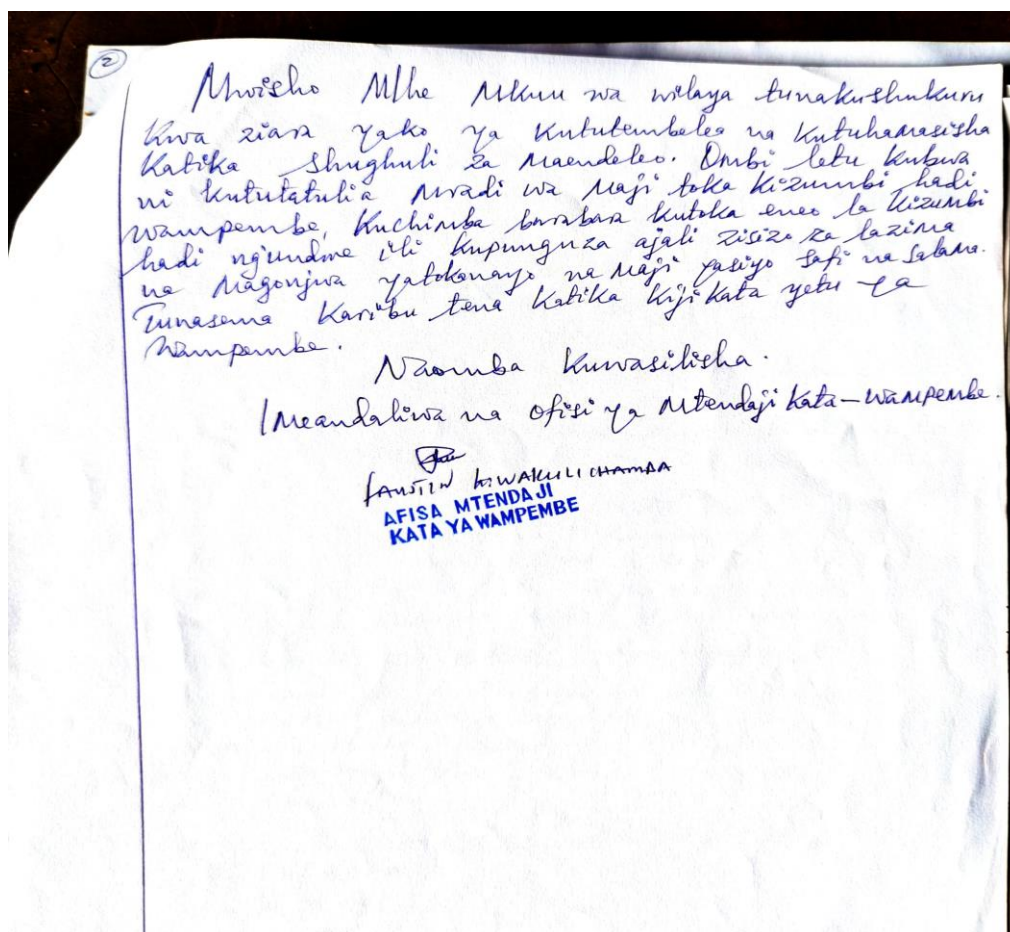 2
Mwisho Mhe Mkuu wa wilaya tunakushukuru
kwa ziara yako ya kututembelea na kutuhamasisha
katika shughuli za maendeleo. Ombi letu kubwa
ni kututatulia mradi wa maji toka Kizumbi hadi
wampembe, Kuchimba barabara kutoka eneo la Kizumbi
hadi ng'undwe ili kupunguza ajali zisizo za lazima
na magonjwa yatokanayo na maji yasiyo safi na salama.
Tunasema Karibu tena katika Kiji Kata yetu ya
Wampembe.
Naomba Kuwasilisha.
Imeandaliwa na ofisi ya Mtendaji Kata - Wampembe.
AFISA MTENDAJI
KATA YA WAMPEMBE